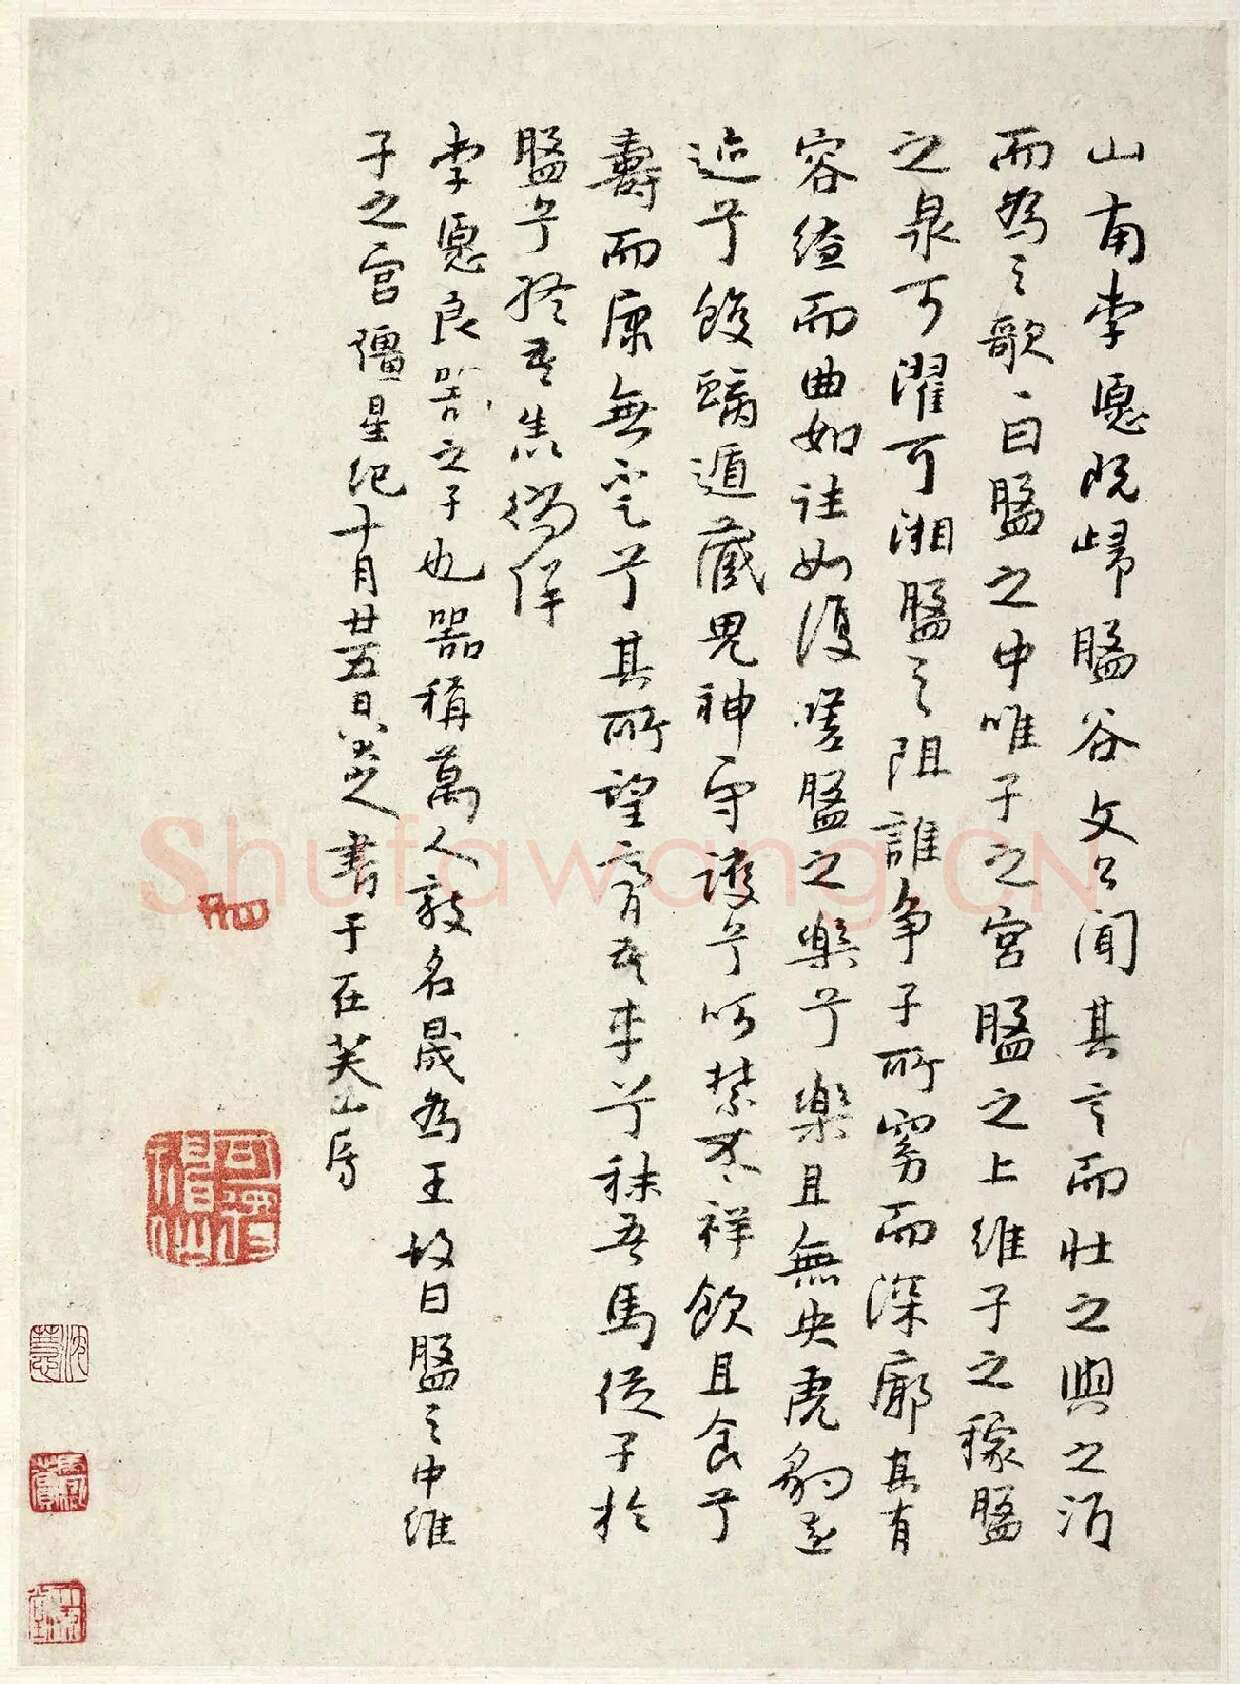 山南李愿既歸盤谷文公聞其言而壯之與之酒
而為之歌曰盤之中唯子之宮盤之上維子之稼盤
之泉可濯可湘盤之阻誰爭子所窈而深廓其有
容繚而曲如往如復嗟盤之樂兮樂且無央虎豹遠
迹兮蛟螭遁藏鬼神守護兮呵禁不祥飲且食兮
壽而康無不足兮其所望膏吾車兮秣吾馬從子於
盤兮終吾生徜徉
李愿良器之子也器稱萬人敵名晟為王故曰盤之中維
子之宮僵星紀十月廿五日八大山人書于在芙山房
可得神仙
Shufawang.CN